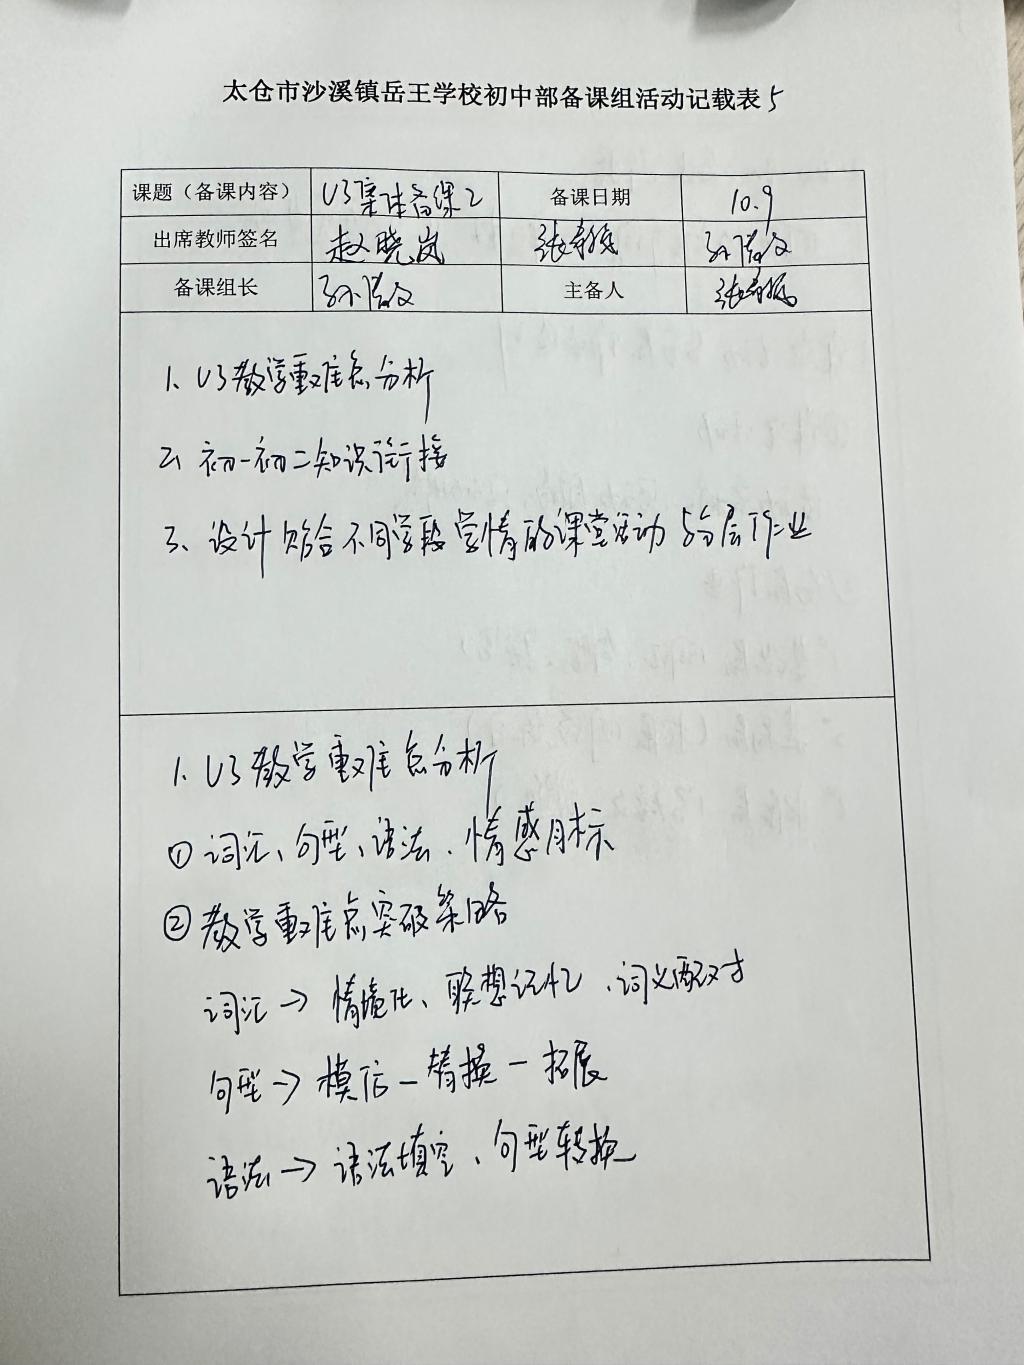 太仓市沙溪镇岳王学校初中部备课组活动记载表5
课题（备课内容） U3集体备课2 备课日期 10.9
出席教师签名 赵晓岚 张 孙
备课组长 孙 主备人 张
1、U3教学重难点分析
2、初一初二知识衔接
3、设计贴合不同学段学情的课堂活动与分层作业
1、U3教学重难点分析
①词汇、句型、语法、情感目标
②教学重难点突破策略
词汇→情境化、联想记忆、词义配对
句型→模仿—替换—拓展
语法→语法填空、句型转换